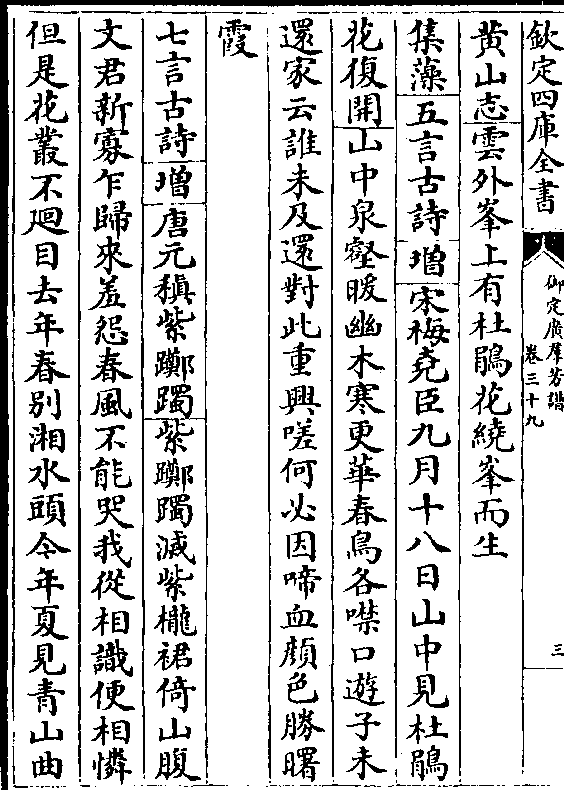 欽定四庫全書
御定廣羣芳譜
卷三十九
三
黄山志雲外峯上有杜鵑花繞峯而生
集藻五言古詩增宋梅堯臣九月十八日山中見杜鵑
花復開山中泉壑暖幽木寒更華春鳥各噤口遊子未
還家云誰未及還對此重興嗟何必因啼血顔色勝曙
霞
七言古詩增唐元稹紫躑躅紫躑躅滅紫櫳裙倚山腹
文君新寡乍歸來羞怨春風不能哭我從相識便相憐
但是花叢不廻目去年春别湘水頭今年夏見青山曲